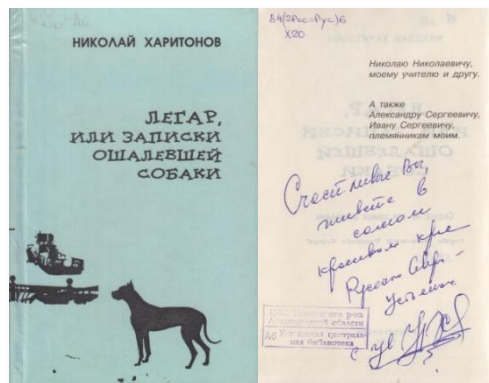 НИКОЛАЙ ХАРИТОНОВ
ЛЕГАР,
ИЛИ ЗАПИСКИ
ОШАЛЕВШЕЙ
СОБАКИ
84(2Рос=Рус)6
Х20
Николаю Николаевичу,
моему учителю и другу.
А также
Александру Сергеевичу,
Ивану Сергеевичу,
племянникам моим.
Счастливые Вы,
живете в
самом
красивом крае
Русского Севера -
Устьянах.
с ув
ная библиотека